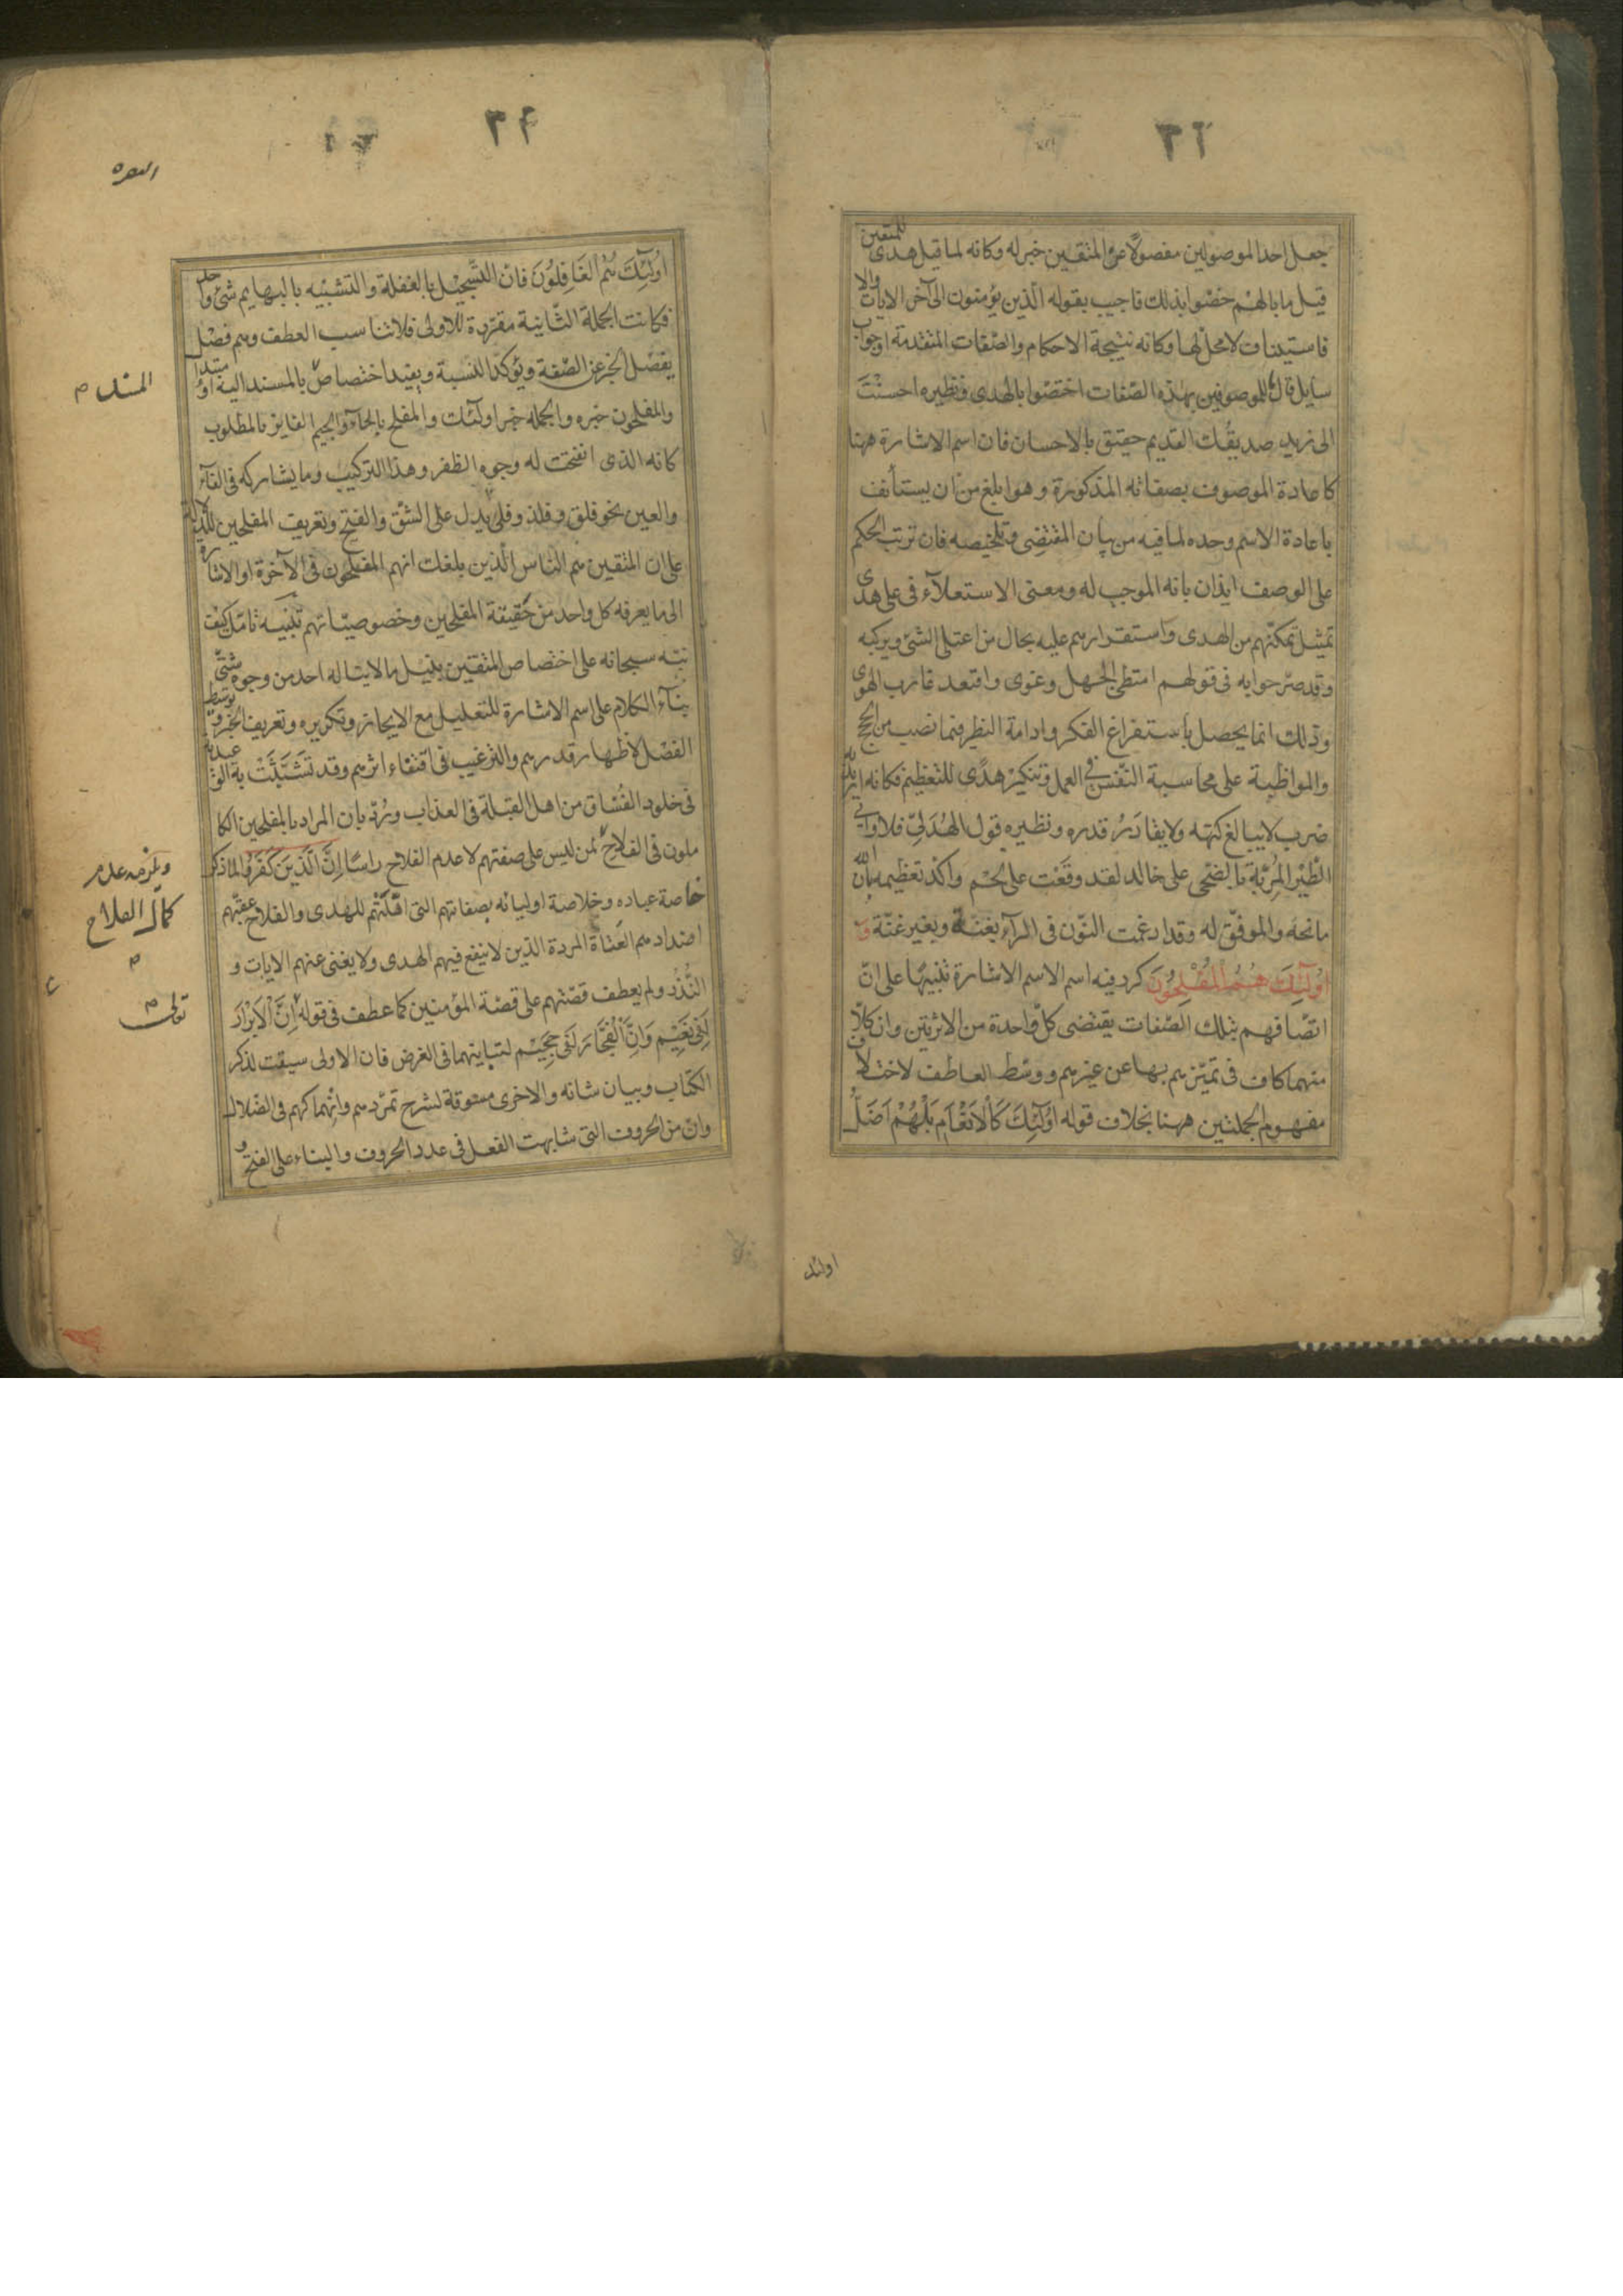 ٣٦
جعل احد الموصولين مفصولًا عن المتقين خبر له وكانه لما قيل هدى للمتقين
قيل ما بالهم خصّوا بذلك فاجيب بقوله الّذين يؤمنون الى آخر الايات والا
فاستيناف لا محل لها وكانه نتيجة الاحكام والصّفات المتقدمة او جواب
سايل قال للموصوفين بهذه الصّفات اختصّوا بالهدى ونظيره احسنْتَ
الى زيد صديقُك القديم حقيق بالاحسان فان اسم الاشارة ههنا
كاعادة الموصوف بصفاته المذكورة وهو ابلغ من ان يستأنف
باعادة الاسم وحده لما فيه من بيان المقتضِى وتلخيصه فان ترتب الحكم
على الوصف ايذان بانه الموجب له ومعنى الاستعلآء فى على هدى
تمثيل تمكنّهم من الهدى واستقرارهم عليه بحال من اعتلى الشئ ويركبه
وقد صرّحوا به فى قولهم امتطى الجهل وغوى واقتعد غارب الهوى
وذلك انما يحصل باستفراغ الفكر وادامة النظر فيما نصب من الحجج
والمواظبة على محاسبة النّفس فى العمل وتنكير هدًى للتعظيم فكانه اريد به
ضرب لا يبالغ كنهه ولا يقادَرُ قدره ونظيره قول الهُذَلىّ فلا وابى
الطّيْر المُرِبّة بالضحى على خالد لقد وقعْت على لحْم واكّد تعظيمه بان الله
مانحه والموفّق له وقد ادغمت النّون فى الرآء بغنة وبغير غنّة وَ
اُوْلَٓئِكَ هُمُ الْمُفْلِحُونَ كرر فيه اسم الاسم الاشارة تنْبيهًا على انّ
اتصّافهم بتلك الصّفات يقتضى كلّ واحدة من الاثرتين وان كلاّ
منهما كاف فى تميّزهم بها عن غيرهم ووسط العاطف لاختلاف
مفهوم الجملتين ههنا بخلاف قوله اُولَٓئِكَ كَالْاَنْعَامِ بَلْ هُمْ اَضَلُّ
اولئك
٣٦
البقره
اُولَٓئِكَ هُمُ الْغَافِلُونَ فان التّسْجيْل بالغفلة والتشبيْه بالبهايم شئ واحد
فكانت الجملة الثّانية مقرّرة للاولى فلا تناسب العطف وهم فصْل
يفصْل الخبر عن الصّفة ويؤكد النسبة ويفيد اختصاصّ بالمسند اليه او مبتدا
والمفلحون خبره والجمله خبر اولئك والمفلح بالحآء والجيم الفايز بالمطلوب
كانه الذى انفتحت له وجوه الظفر وهذا التركيب وما يشاركه فى الفآء
والعين نحو فلق وفلذ وفلى يدل على الشّق والفتح وتعريف المفلحين للدّلالة
على ان المتقين هم النّاس الّذين بلغك انهم المفلحون فى الآخرة او الاشارة
الى ما يعرفه كل واحد من حقيقة المفلحين وخصوصيّاتهم تنبيه تامّل كيف
نبّه سبحانه على اختصاص المتقين بنيْل ما لا يناله احد من وجوه شتّى
بنآء الكلام على اسم الاشارة للتعليل مع الايجاز وتكريره وتعريف الخبر وتوسيط
الفصْل لاظهار قدرهم والترغيب فى اقتفاء اثرهم وقد تشبَّثَتْ به الوعيدية
فى خلود الفُسّاق من اهل القبلة فى العذاب ورُدّ بان المراد بالمفلحين الكا
ملون فى الفلاح لمن ليس على صفتهم لا عدم الفلاح راسًا اِنَّ الَّذِينَ كَفَرُوا لما ذكر
خاصة عباده وخلاصة اوليائه بصفاتهم التى اهّلَتْهم للهدى والفلاح عقبّهم
اضدادهم العتاة المردة الذين لا ينفع فيهم الهدى ولا يغنى عنهم الايات و
النُّذُر ولم يعطف قصّتهم على قصّة المؤمنين كما عطف فى قوله اِنَّ الْاَبْرَارَ
لَفِى نَعِيْمٍ وَاِنَّ الْفُجَّارَ لَفِى جَحِيْمٍ لتباينهما فى الغرض فان الاولى سيقت لذكر
الكتاب وبيان شانه والاخرى مسوقة لشرح تمرّدهم وانهماكهم فى الضّلال
وانّ من الحروف التى شابهت الفعل فى عدد الحروف والبناء على الفتح و
المسند م
ويلزمه عدم
كمال الفلاح
م
تعالى م